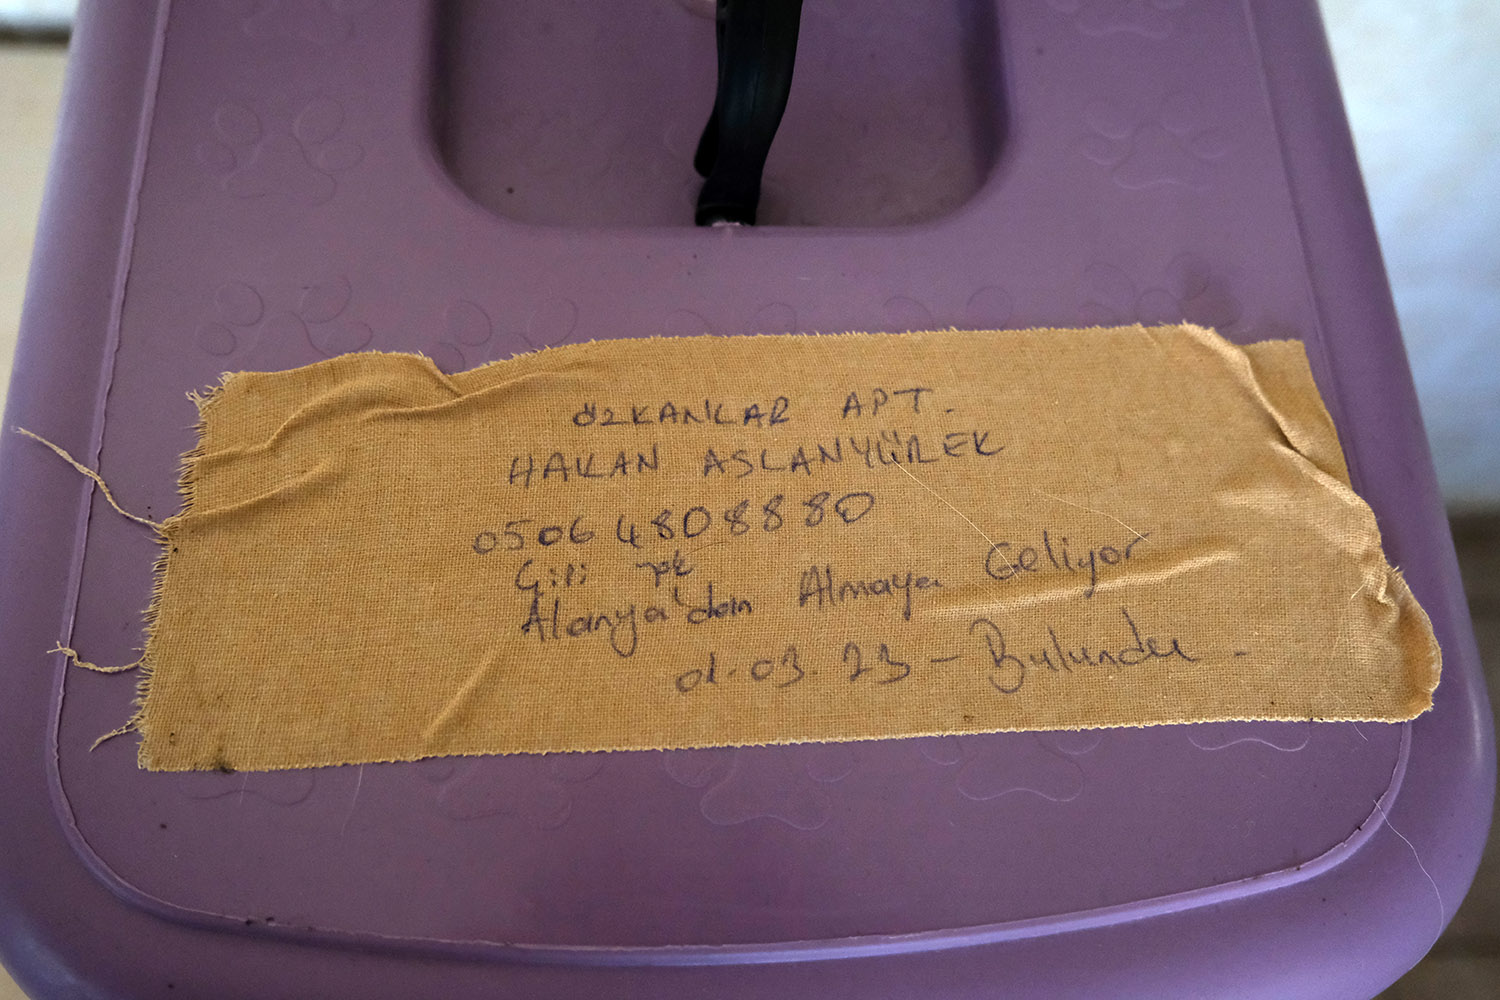 ÖZKANLAR APT.
HAKAN ASLANYÜREK
0506 4808880
Alanya'dan Almaya Geliyor
01.03.23 - Bulundu -